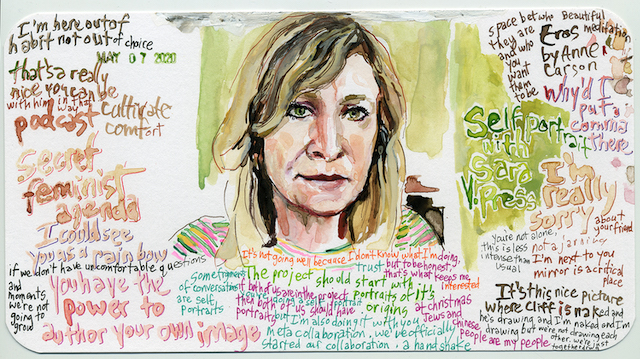 I'm here out of
habit not out of choice
MAY 07 2020
that's a really
nice you can be
with him in that
way
podcast
cultivate
comfort
secret
feminist
agenda
I could see
you as a rainbow
if we don't have uncomfortable questions
and
moments
we're not
going to
grow
you have the
power to
author your own image
Some fragments
of conversations
are self
portraits
It's not going well because I don't know what I'm doing.
trust
but to be honest,
that's what keeps me
interested
The project should start with
portraits of It's
if both of us are in the project
they're doing a self portrait
or of us should have
origin
portrait but I'm also doing it with you
meta collaboration, we've officially
started our collaboration: a handshake
at christmas
Jews and
chinese
people are my people
space betwn
they are
and who
you
want
them
to be
Beautiful
meditation
Eros
by Anne
Carson
why'd I
put a
comma
there
Self portrait
with
Sara
V. Press
I'm
really
sorry
about
your friend
you're not alone,
this is less
intense than
usual
not a
I'm next to you
mirror is a critical
place
It's this nice picture
where Cliff is naked and
he's drawing and I'm naked and I'm
drawing but we're not drawing each
other. we're just
together in it